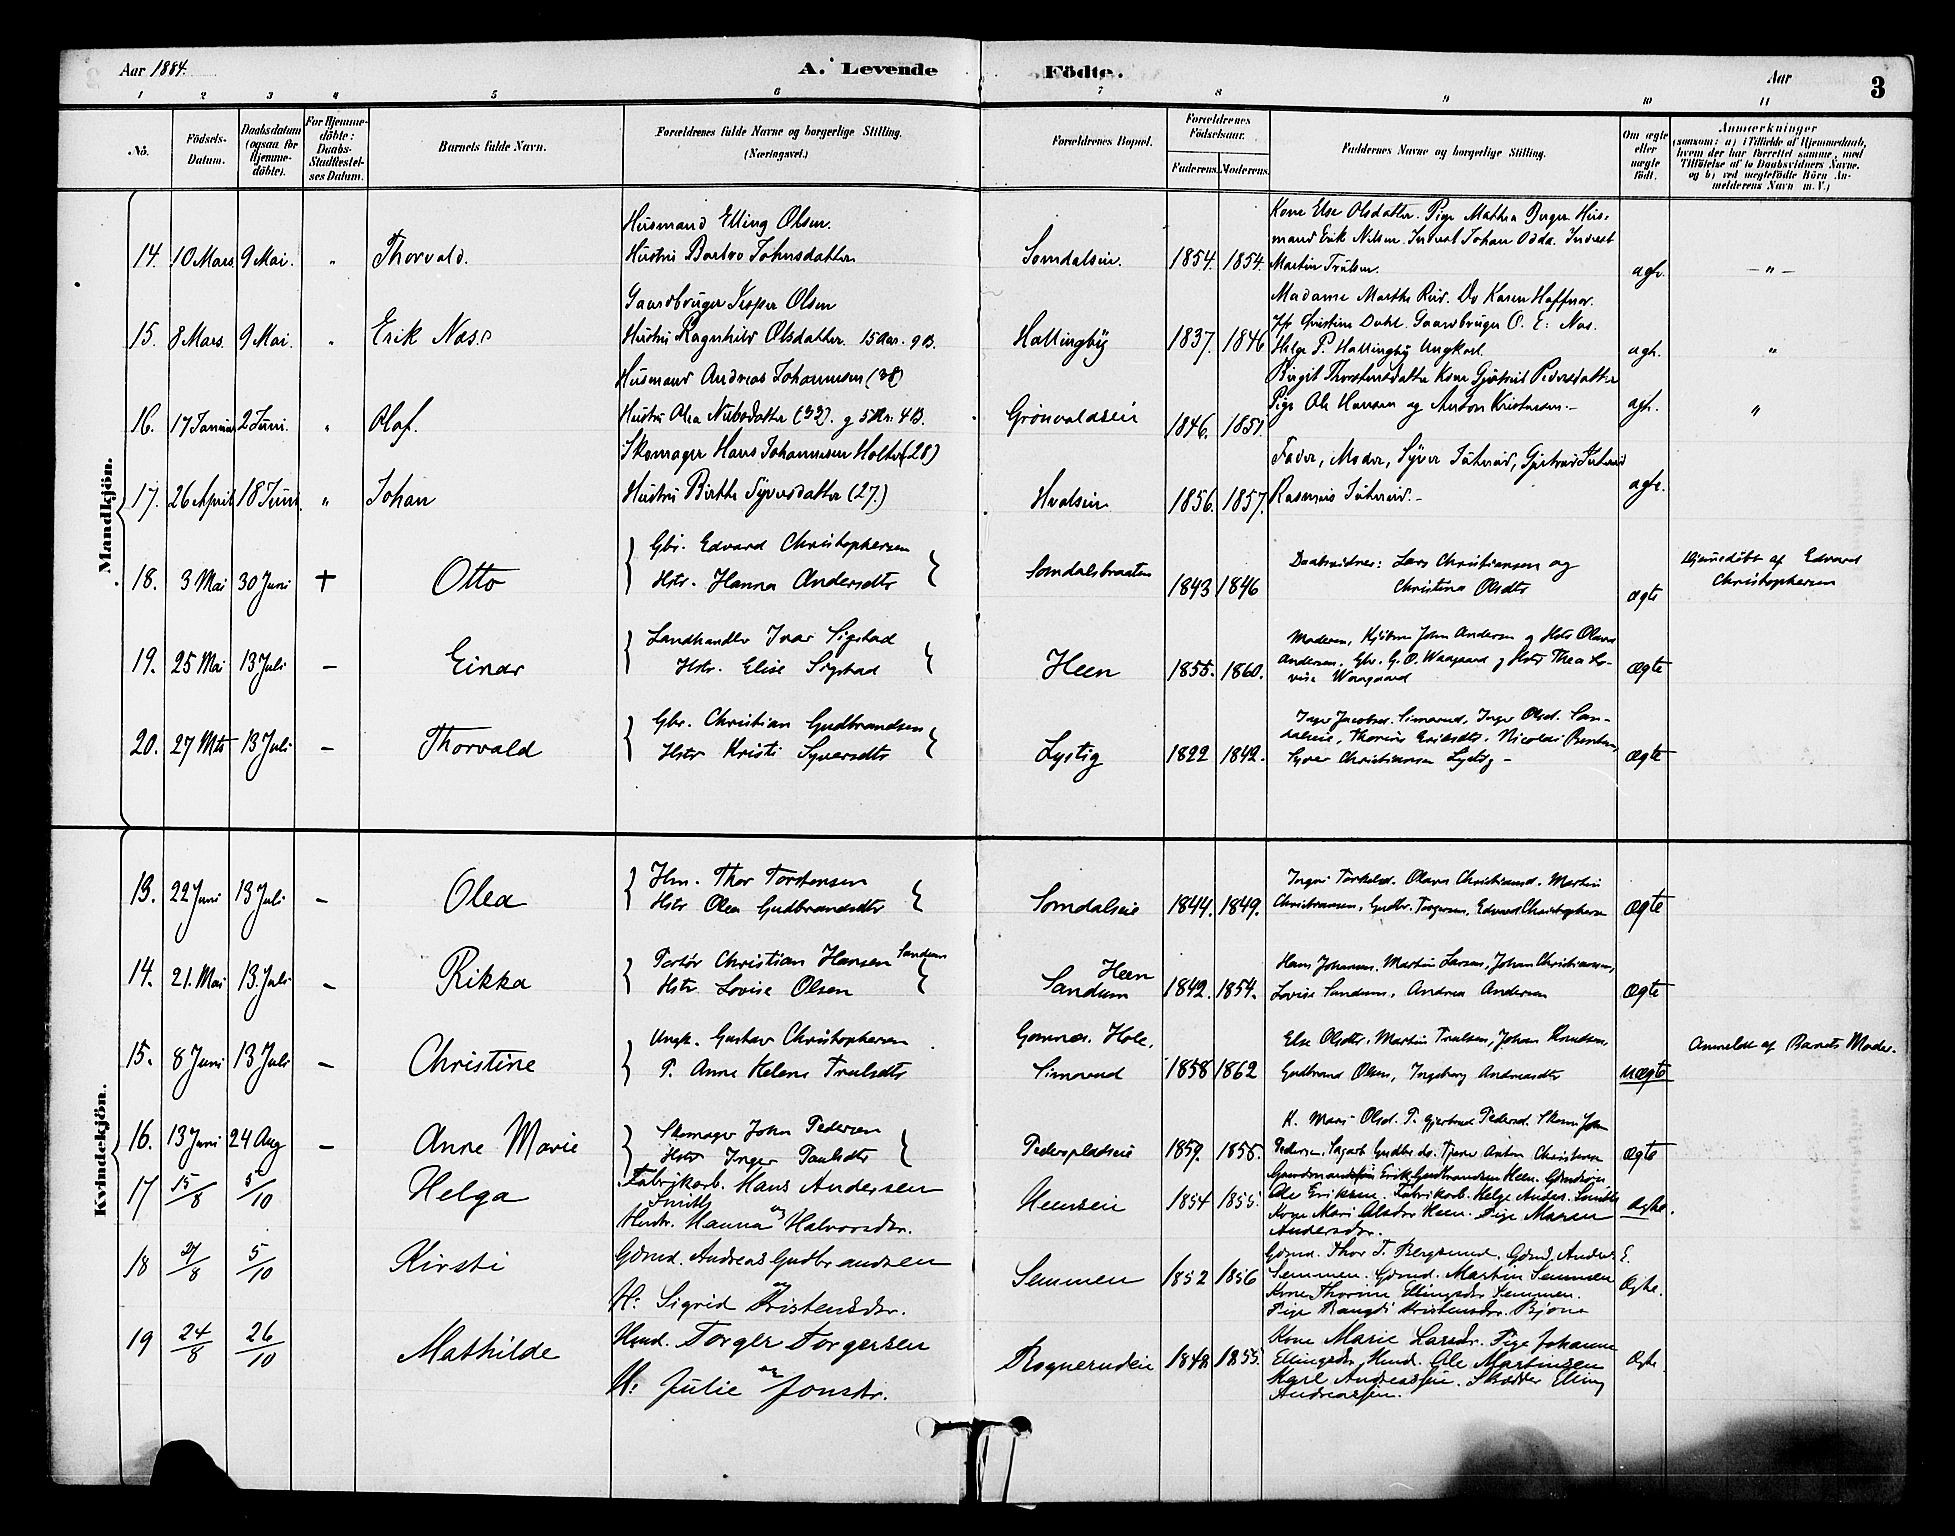 Aar 1884.
A. Levende Födte.
Aar
3
1 2 3 4 5 6 7 8 9 10 11
No.
Födsels-Datum.
Daabsdatum (ogsaa for Hjemmedöbte).
For Hjemmedöbte: Daabs-Stadfæstelses Datum.
Barnets fulde Navn.
Forældrenes fulde Navne og borgerlige Stilling. (Næringsvei.)
Forældrenes Bopæl.
Forældrenes Födselsaar.
Faderens. Moderens.
Faddernes Navne og borgerlige Stilling.
Om ægte eller uægte födt.
Anmærkninger
(saasom: a) i Tilfælde af Hjemmedaab, hvem der har forrettet samme, med Tilföielse af to Daabsvidners Navne, og b) ved uægtefödte Börn Anmelderens Navn m. V.)
Mandkjön.
Husmand Elling Olsen.
Kone Else Olsdatter. Pige Mathea Hus-
mand Erik Nilsen. Inderst Johan Odda. Inderst
14. 10 Mars 9 Mai. " Thorvald. Hustru Barbro Johnsdatter Somdalseie. 1854. 1854. Martin Trulsen. ægte. - " -
Gaardbruger Jesper Olsen
Madame Marthe Do Karen Haffner.
15. 8 Mars. 9 Mai. " Erik Næss Hustru Ragnhild Olsdatter. 15 Aar. 9 B. Hallingby 1837. 1846 Jfr Christine Dahl. Gaardbruger O. E. Næs.
Helge P. Hallingby Ungkarl. ægte. "
Husmand Andreas Johannesen (38)
Birgit Thorstensdatter Kone Gjertrud Pedersdatter
16. 17 Januar 2 Juni. " Olaf. Hustru Olea (33). g 5 Ar. 4 B. Grønvoldseie 1846. 1851. Pige Ole Hansen og Anton Kristensen.- ægte. "
Skomager Hans Johannesen Holter (28)
Fader, Moder, Syver
17. 26 April 18 Juni. " Johan Hustru Birthe Syversdatter (27.) Hvalseie 1856. 1857. Rasmus ægte.
Gbr. Edvard Christophersen
Daabsvidner: Lars Christiansen og
Hjemedøbt af Edvard
18. 3 Mai 30 Juni + Otto Hstr. Hanna Andersdtr Somdalsbraaten 1843 1846 Christine Olsdtr ægte Christophersen
Landhandler Ivar Sigstad
Moderen, John Andersen og Hstr Olava
19. 25 Mai 13 Juli - Einar Hstr. Elise Sigstad Heen 1855. 1860. Andersen, Gbr. G. O. Waagaard og Hstr Thea Lo-
vise Waagaard ægte
Gbr. Christian Gudbrandsen
Inger Jacobsd. Simerud, Inger Olsd. Son-
20. 27 Mts 13 Juli - Thorvald Hstr Kristi Syversdtr Lystig 1822 1842. dalseie, Thorine Eriksdtr, Nicolai
Syver Christiansen Lystig - ægte
Kvindekjön.
Hm. Thor Torstensen
Inger Torkelsd. Olava Christiansd. Martin
13. 22 Juni 13 Juli - Olea Hstr Olea Gudbrandsdtr Somdalseie 1844. 1849. Christiansen, Gudbr. Torgersen, Edvard Christophersen ægte
Portør Christian Hansen Sandum
Heen
Hans Johannes. Martin Larsen, Johan Christiansen,
14. 21. Mai 13. Juli - Rikka Hstr. Lovise Olsen Sandum 1842. 1854. Lovise Sandum, Andrea Andersen ægte
Ungk. Gustav Christophersen
Gomnæs. Hole.
Else Olsdtr. Martin Trulsen, Johan Knudsen,
Anmeldt af Barnets Moder.
15. 8 Juni 13 Juli - Christine P. Anne Helene Trulsdtr Simerud 1858 1862 Gudbrand Olsen, Ingeborg Andreasdtr uægte
Skomager John Pedersen
K. Mari Olsd. P. Gjertrud Pedersd. Skom. John
16. 13 Juni 24 Aug - Anne Marie Hstr Inger Paulsdtr Pederspladseie 1859. 1855. Pedersen, Gudbr. do. Tjener Anton Christensen ægte
17 15/8 5/10 Helga Fabrikarb. Hans Andersen
Smith og
Hustr. Hanna Halvorsdr. Heenseie 1854 1855. Gaardmandssøn Erik Gudbrandsen Heen. Gaardssøn
Ole Eriksen. Fabrikarb. Helge Anders. Smith
Kone Mari Olsdtr Heen. Pige Maren
Andersdr. ægte.
18 27/8 5/10 Kirsti Gdmd. Andreas Gudbrandsen
og
H: Sigrid Kristensdr. Semmen 1852 1856 Gdmd. Thor T. Bergsund. Gdmd. Anders E.
Semmen. Gdmd. Martin Semmen
Kone Thorine Ellingsdr Semmen.
Pige Rangdi Kristensdr. Bjone Ægte.
19 24/8 26/10 Mathilde Hmd. Torger Torgersen
og
H: Julie Jonsdr. Rognerudeie 1848 1855. Kone Marie Larsdr. Pige Johanne
Ellingsdr Hmd. Ole Martinsen
Karl Andreassen. Skrædder Elling
Andreassen. Ægte